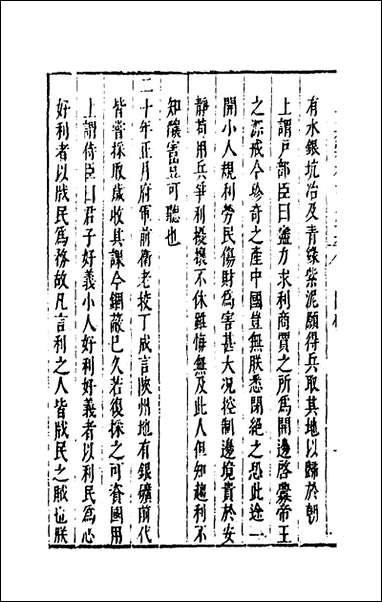 有水銀坑冶及青綠紫泥願得兵取其地以歸於朝
上謂戶部臣曰盡力求利商賈之所爲開邊啓釁帝王
之深戒今珍奇之產中國豈無朕悉閉絕之恐此途一
開小人規利勞民傷財爲害甚大况控制邊境貴於安
靜苟用兵爭利擾攘不休雖悔無及此人但知趨利不
知釀害豈可聽也
二十年正月府軍前衛老校丁成言陝州地有銀礦前代
皆嘗採取歲收其課今錮蔽已久若復採之可資國用
上謂侍臣曰君子好義小人好利好義者以利民爲心
好利者以戕民爲務故凡言利之人皆戕民之賊也朕